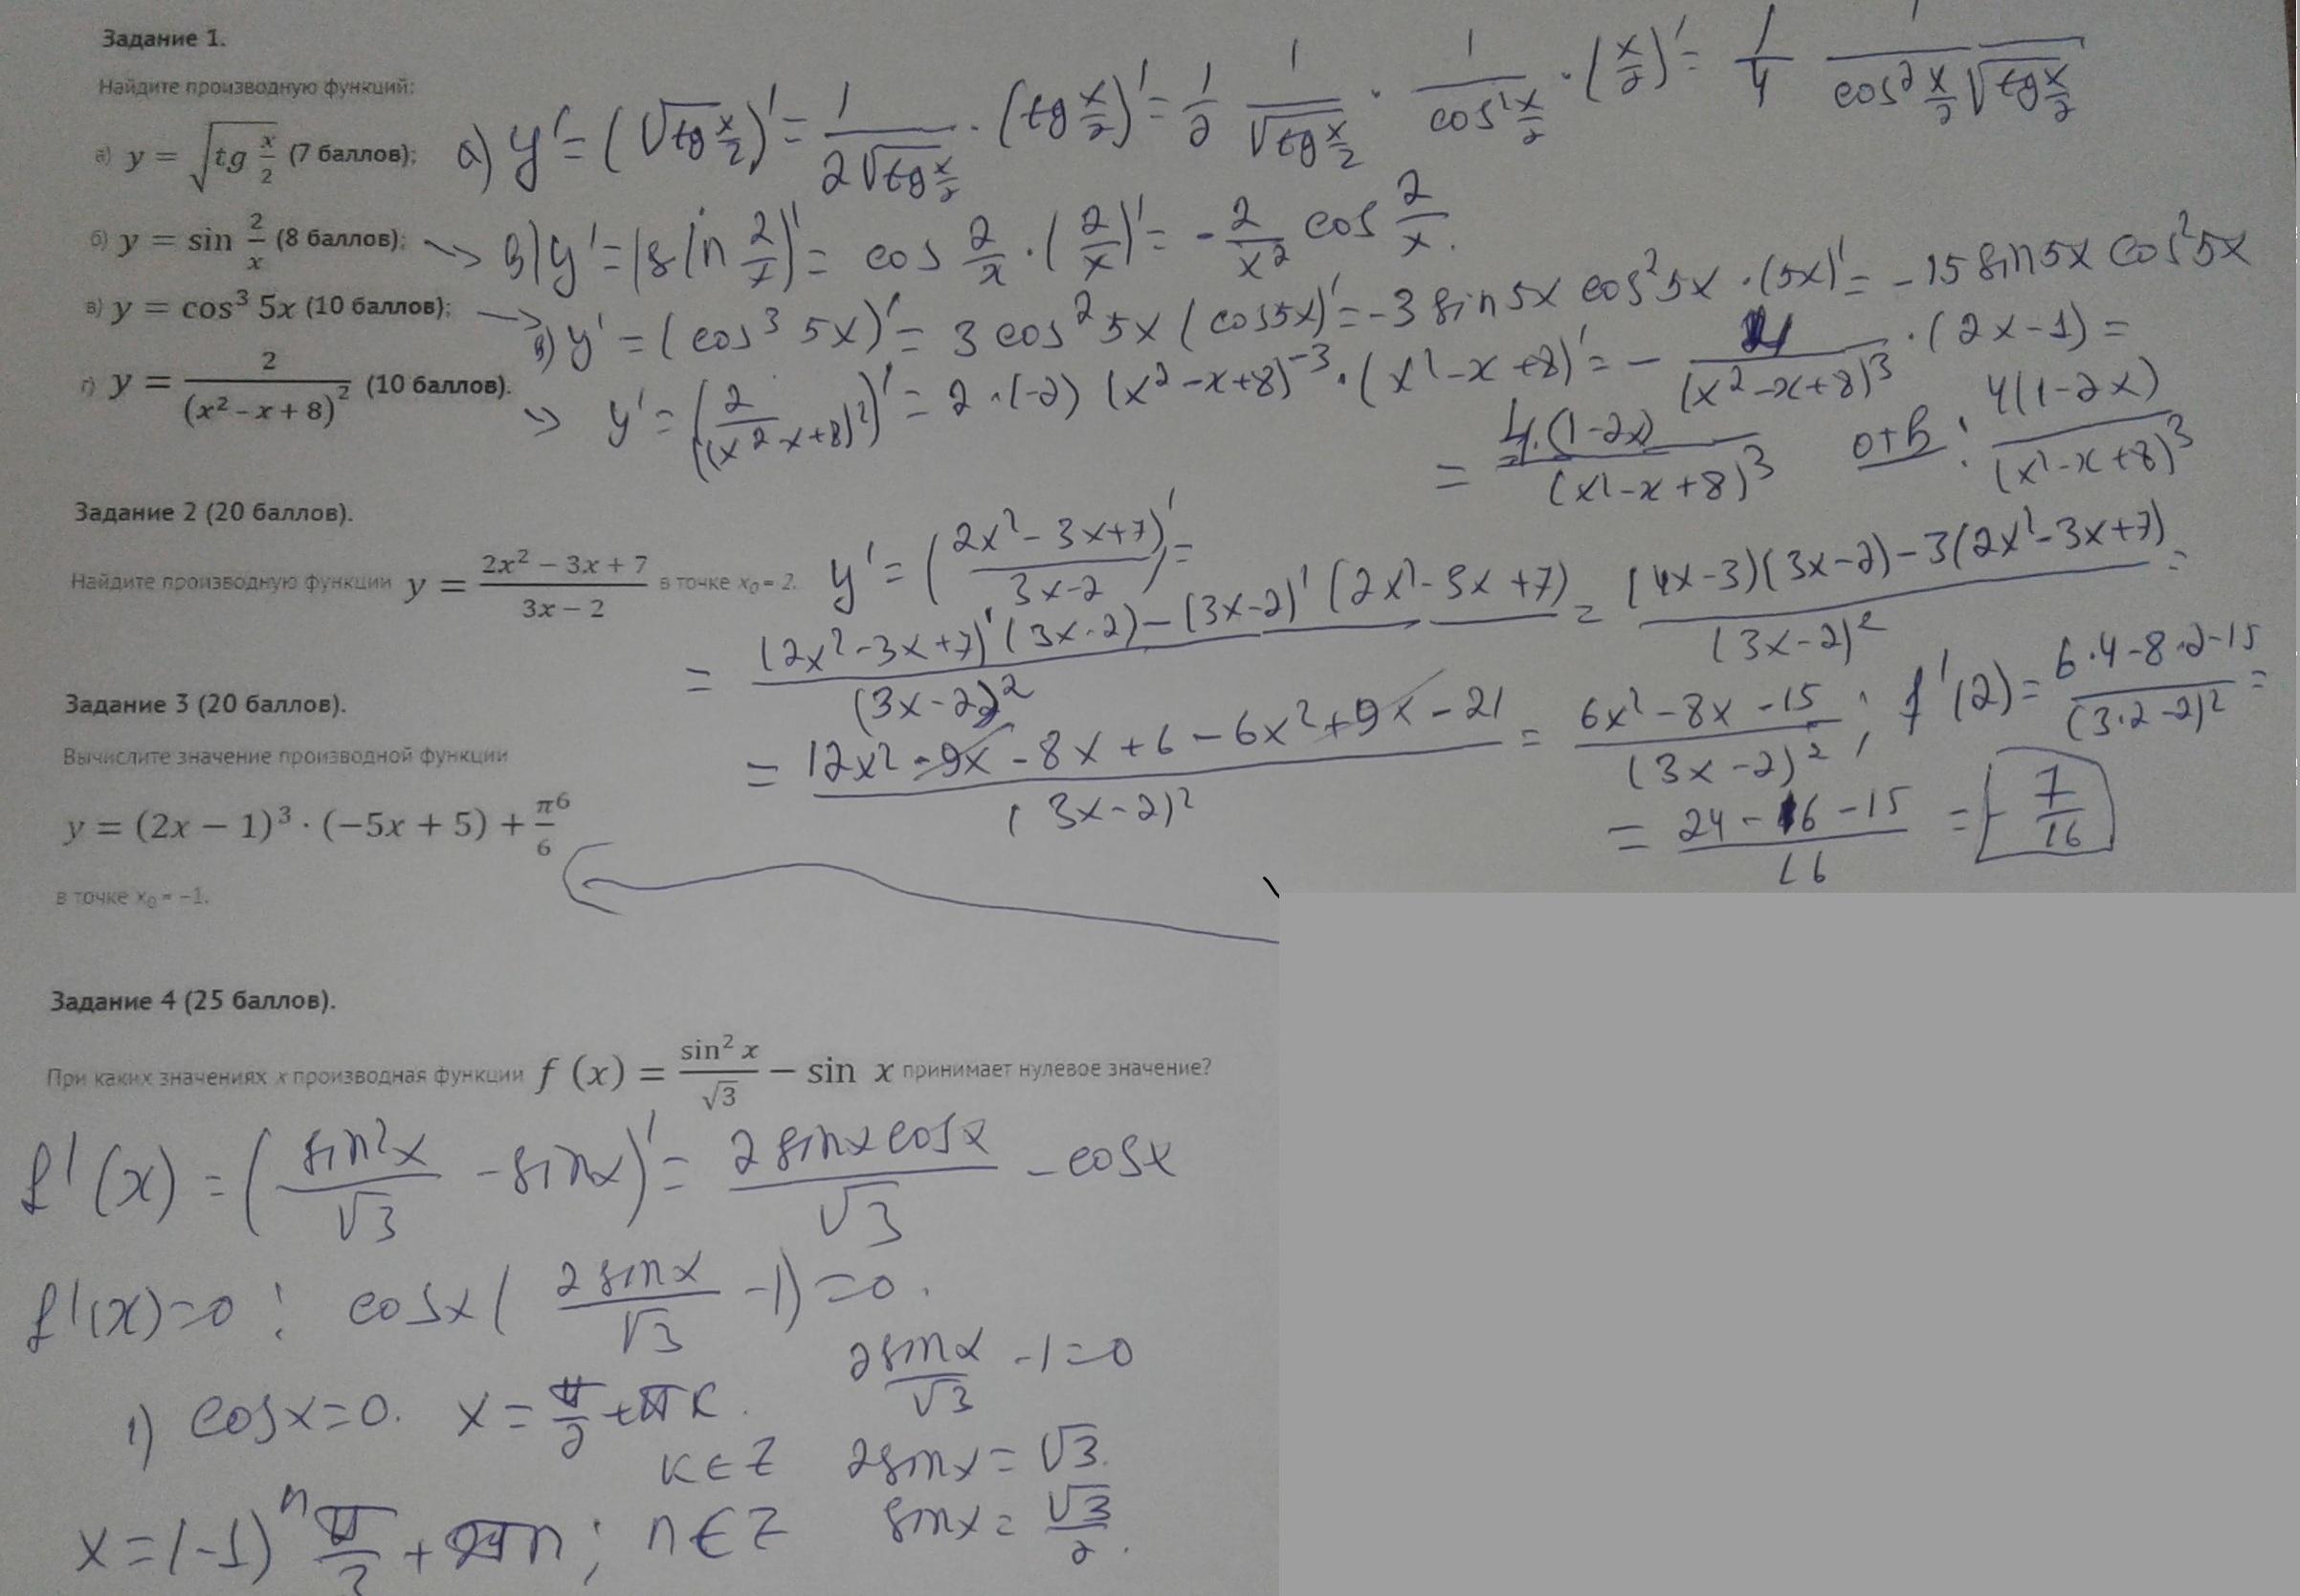 Задание 1.
Найдите производную функций:
а) y = √(tg x/2) (7 баллов);
а) y' = (√(tg x/2))' = 1/(2√(tg x/2)) · (tg x/2)' = 1/2 1/√(tg x/2) · 1/(cos² x/2) · (x/2)' = 1/4 1/(cos² x/2 √(tg x/2))
б) y = sin 2/x (8 баллов);
в) y' = (sin 2/x)' = cos 2/x · (2/x)' = - 2/x² cos 2/x.
в) y = cos³ 5x (10 баллов);
в) y' = (cos³ 5x)' = 3 cos² 5x (cos5x)' = -3 sin 5x cos² 5x · (5x)' = -15 sin 5x cos² 5x
г) y = 2/(x² - x + 8)² (10 баллов).
y' = (2/(x² - x + 8)²)' = 2 · (-2) (x² - x + 8)⁻³ · (x² - x + 8)' = - 4/(x² - x + 8)³ · (2x - 1) =
= 4·(1-2x)/(x² - x + 8)³ отв: 4(1-2x)/(x² - x + 8)³
Задание 2 (20 баллов).
Найдите производную функции y = (2x² - 3x + 7)/(3x - 2) в точке x₀ = 2.
y' = ((2x² - 3x + 7)/(3x - 2))' =
= ((2x² - 3x + 7)' (3x - 2) - (3x - 2)' (2x² - 3x + 7))/(3x - 2)² = ((4x - 3)(3x - 2) - 3(2x² - 3x + 7))/(3x - 2)² =
= (12x² - 9x - 8x + 6 - 6x² + 9x - 21)/(3x - 2)² = (6x² - 8x - 15)/(3x - 2)²; f'(2) = (6·4 - 8·2 - 15)/(3·2 - 2)² =
= (24 - 16 - 15)/16 = - 7/16
Задание 3 (20 баллов).
Вычислите значение производной функции
y = (2x - 1)³ · (-5x + 5) + π⁶/6
в точке x₀ = -1.
Задание 4 (25 баллов).
При каких значениях x производная функции f (x) = sin² x/√3 - sin x принимает нулевое значение?
f'(x) = (sin²x/√3 - sinx)' = 2 sinx cosx/√3 - cosx
f'(x)=0: cosx (2 sinx/√3 - 1) = 0.
2sinx/√3 - 1 = 0
1) cosx=0. x = π/2 + πк.
к∈Z 2sinx = √3.
x = (-1)ⁿ π/3 + πn; n∈Z sinx = √3/2.